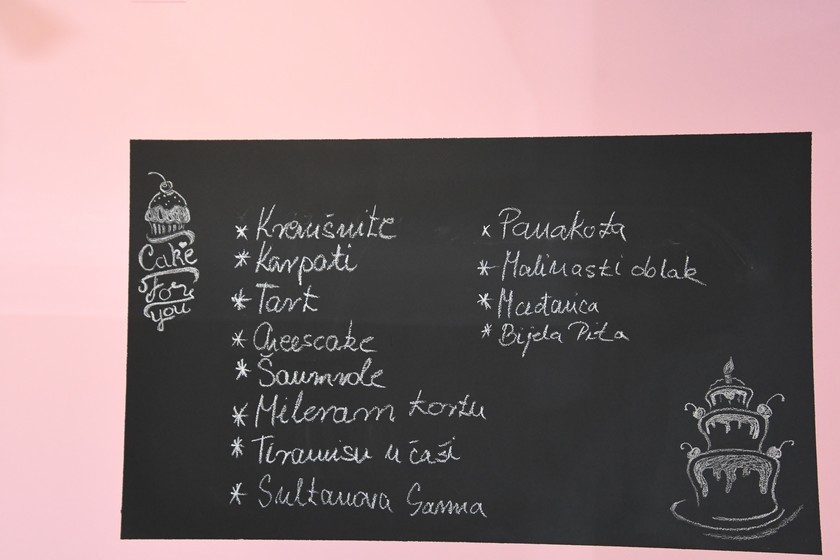 Cake
For
you
* Kremšnite
* Karpati
* Tart
* Cheescake
* Šaumrole
* Mileram tortu
* Tiramisu u čaši
* Sultanova Samia
x Panakota
* Malinasti oblak
* Mađarica
* Bijela Pita